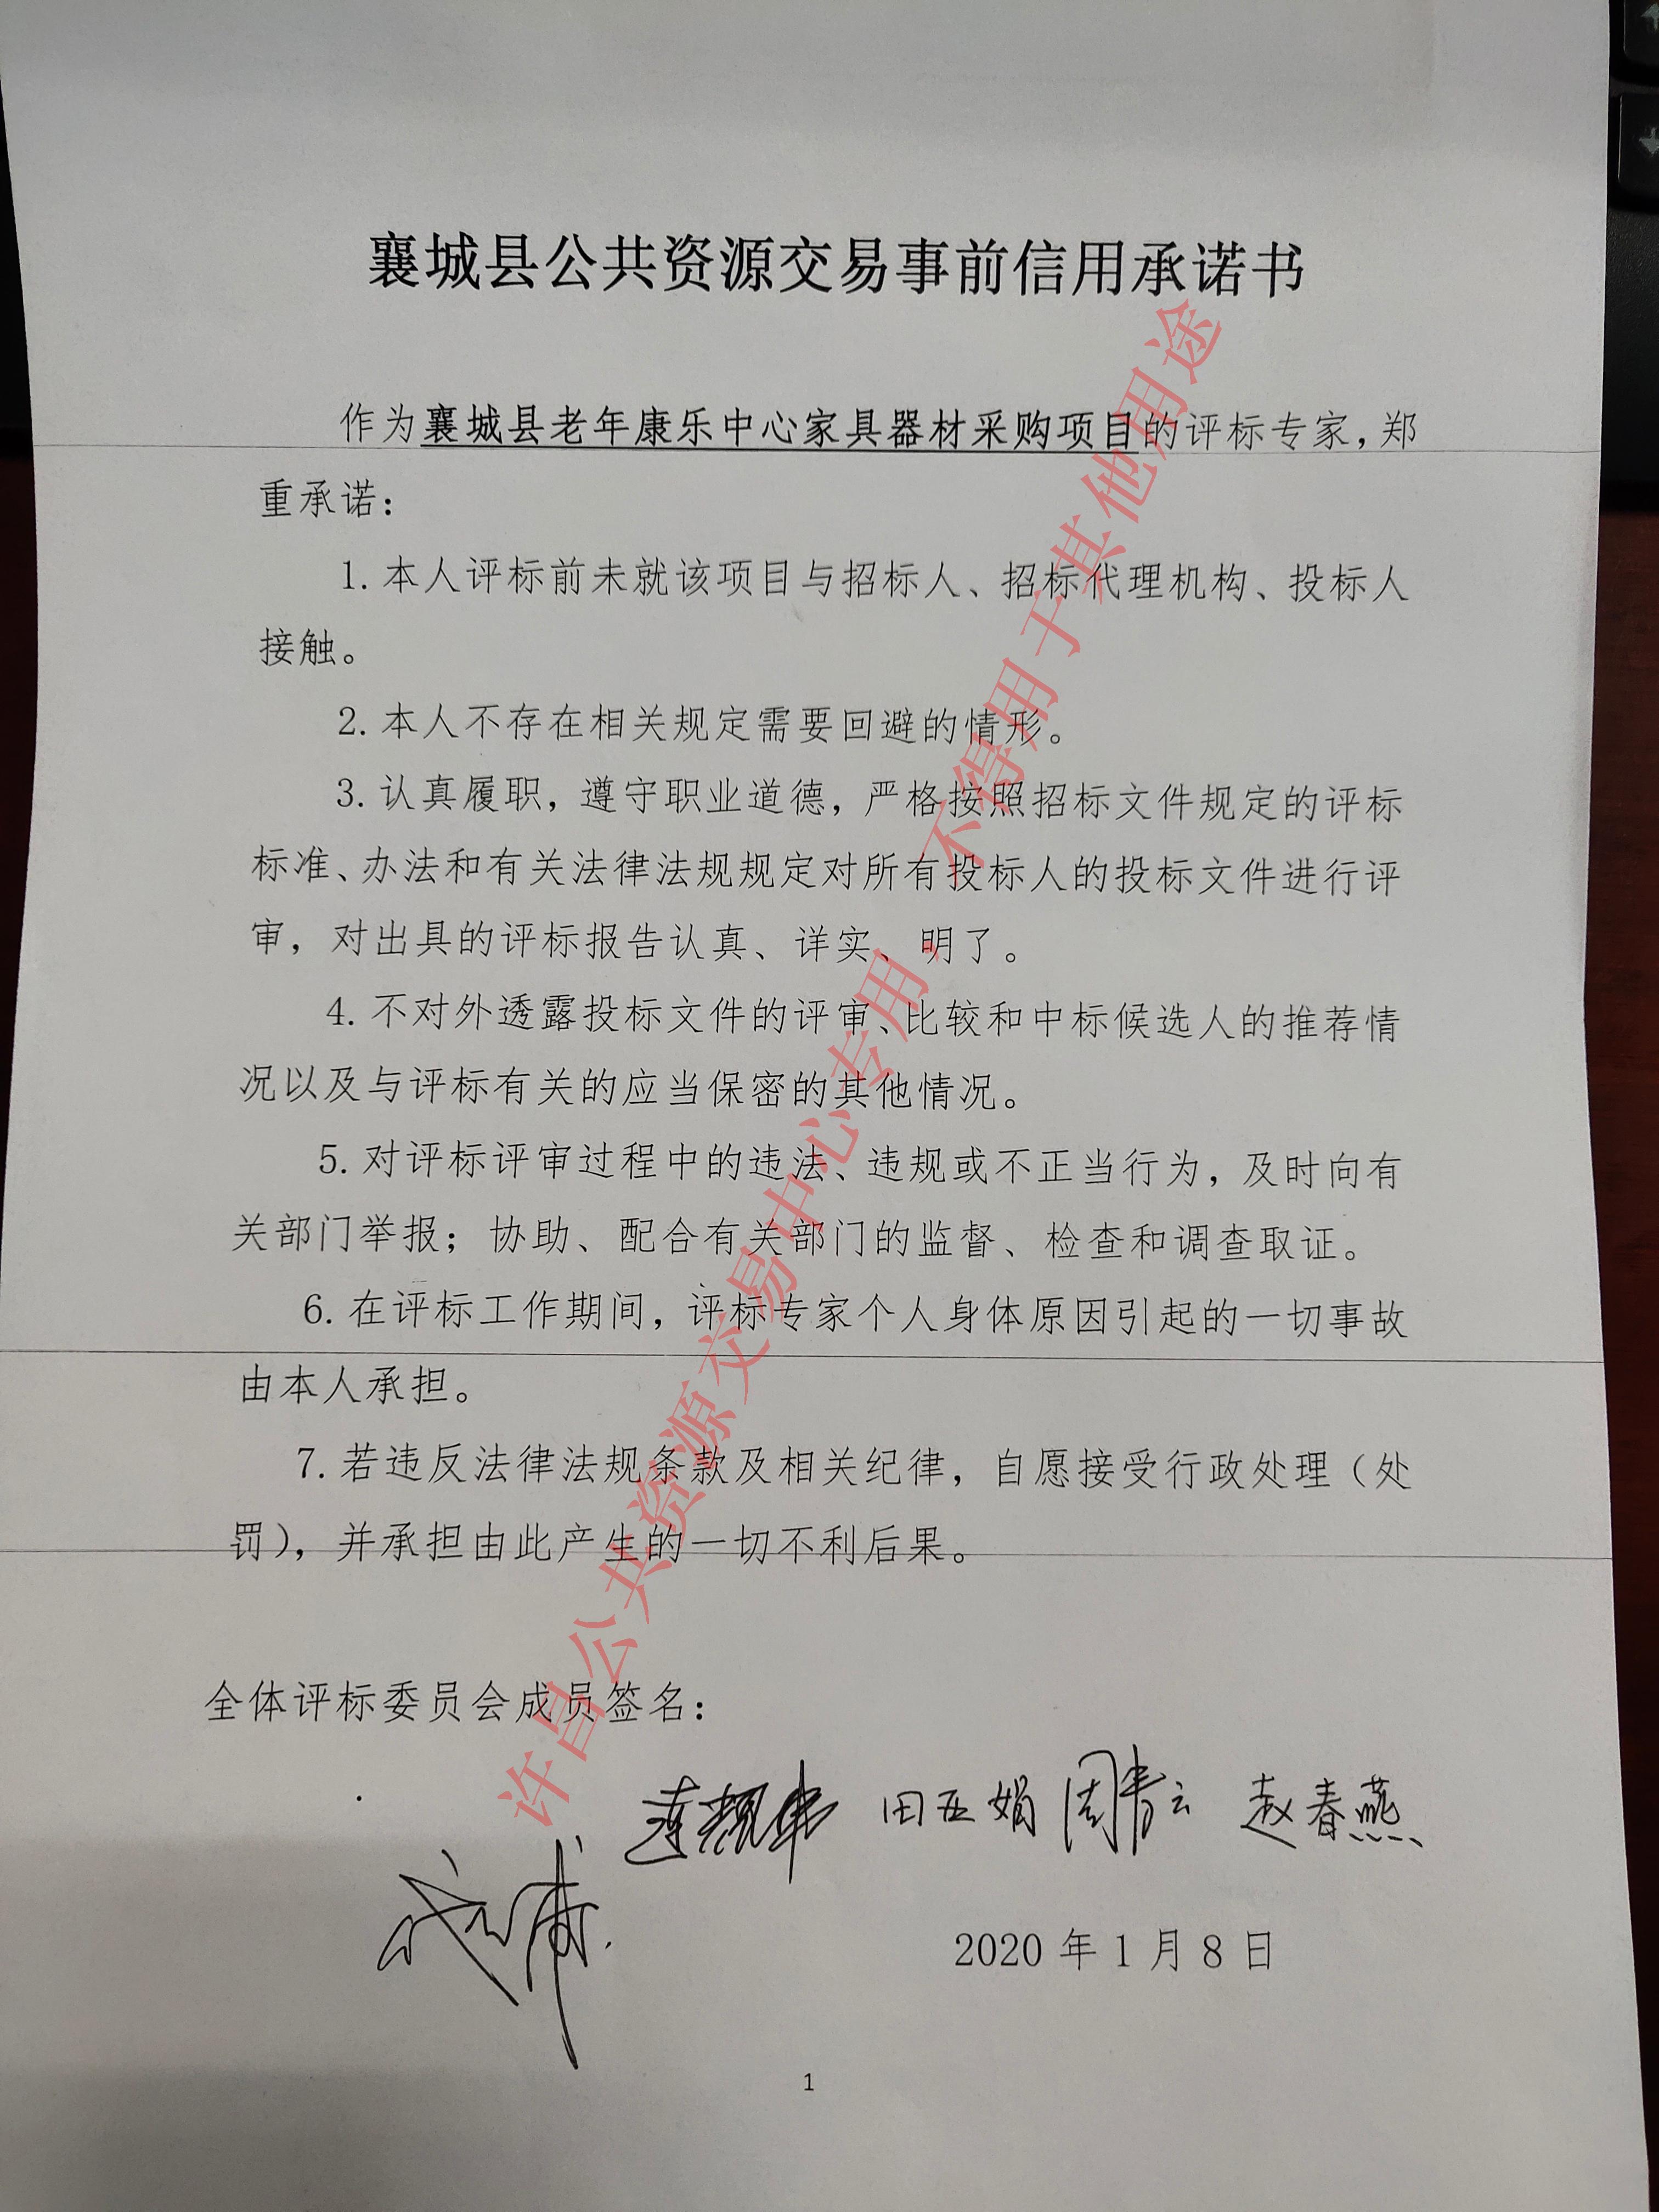 襄城县公共资源交易事前信用承诺书
作为襄城县老年康乐中心家具器材采购项目的评标专家，郑
重承诺：
1. 本人评标前未就该项目与招标人、招标代理机构、投标人
接触。
2. 本人不存在相关规定需要回避的情形。
3. 认真履职，遵守职业道德，严格按照招标文件规定的评标
标准、办法和有关法律法规规定对所有投标人的投标文件进行评
审，对出具的评标报告认真、详实、明了。
4. 不对外透露投标文件的评审、比较和中标候选人的推荐情
况以及与评标有关的应当保密的其他情况。
5. 对评标评审过程中的违法、违规或不正当行为，及时向有
关部门举报；协助、配合有关部门的监督、检查和调查取证。
6. 在评标工作期间，评标专家个人身体原因引起的一切事故
由本人承担。
7. 若违反法律法规条款及相关纪律，自愿接受行政处理（处
罚），并承担由此产生的一切不利后果。
全体评标委员会成员签名：
田亚娟 周青云 赵春燕
2020 年 1 月 8 日
1
许昌公共资源交易中心专用，不得用于其他用途